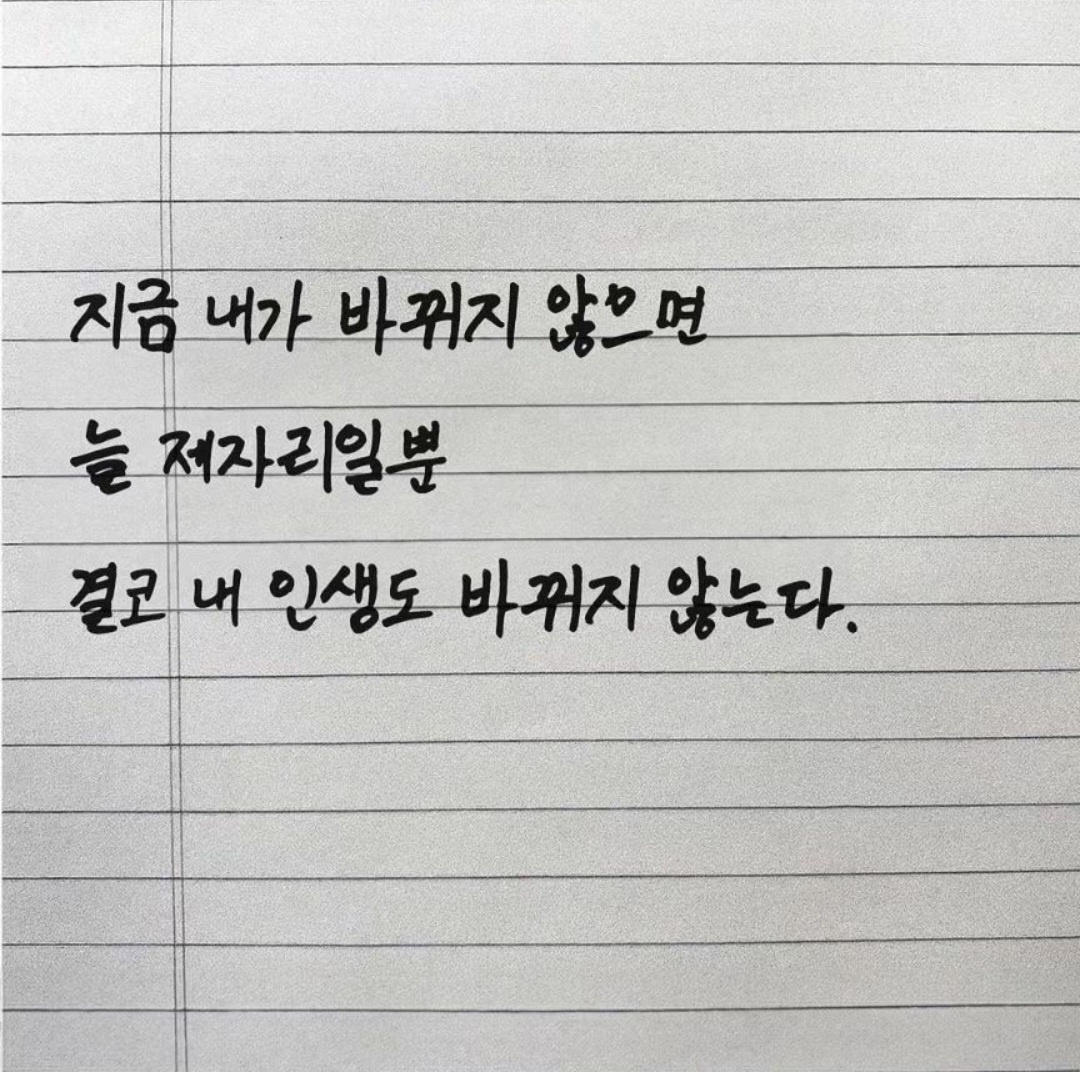 지금 내가 바뀌지 않으면
늘 제자리일뿐
결코 내 인생도 바뀌지 않는다.